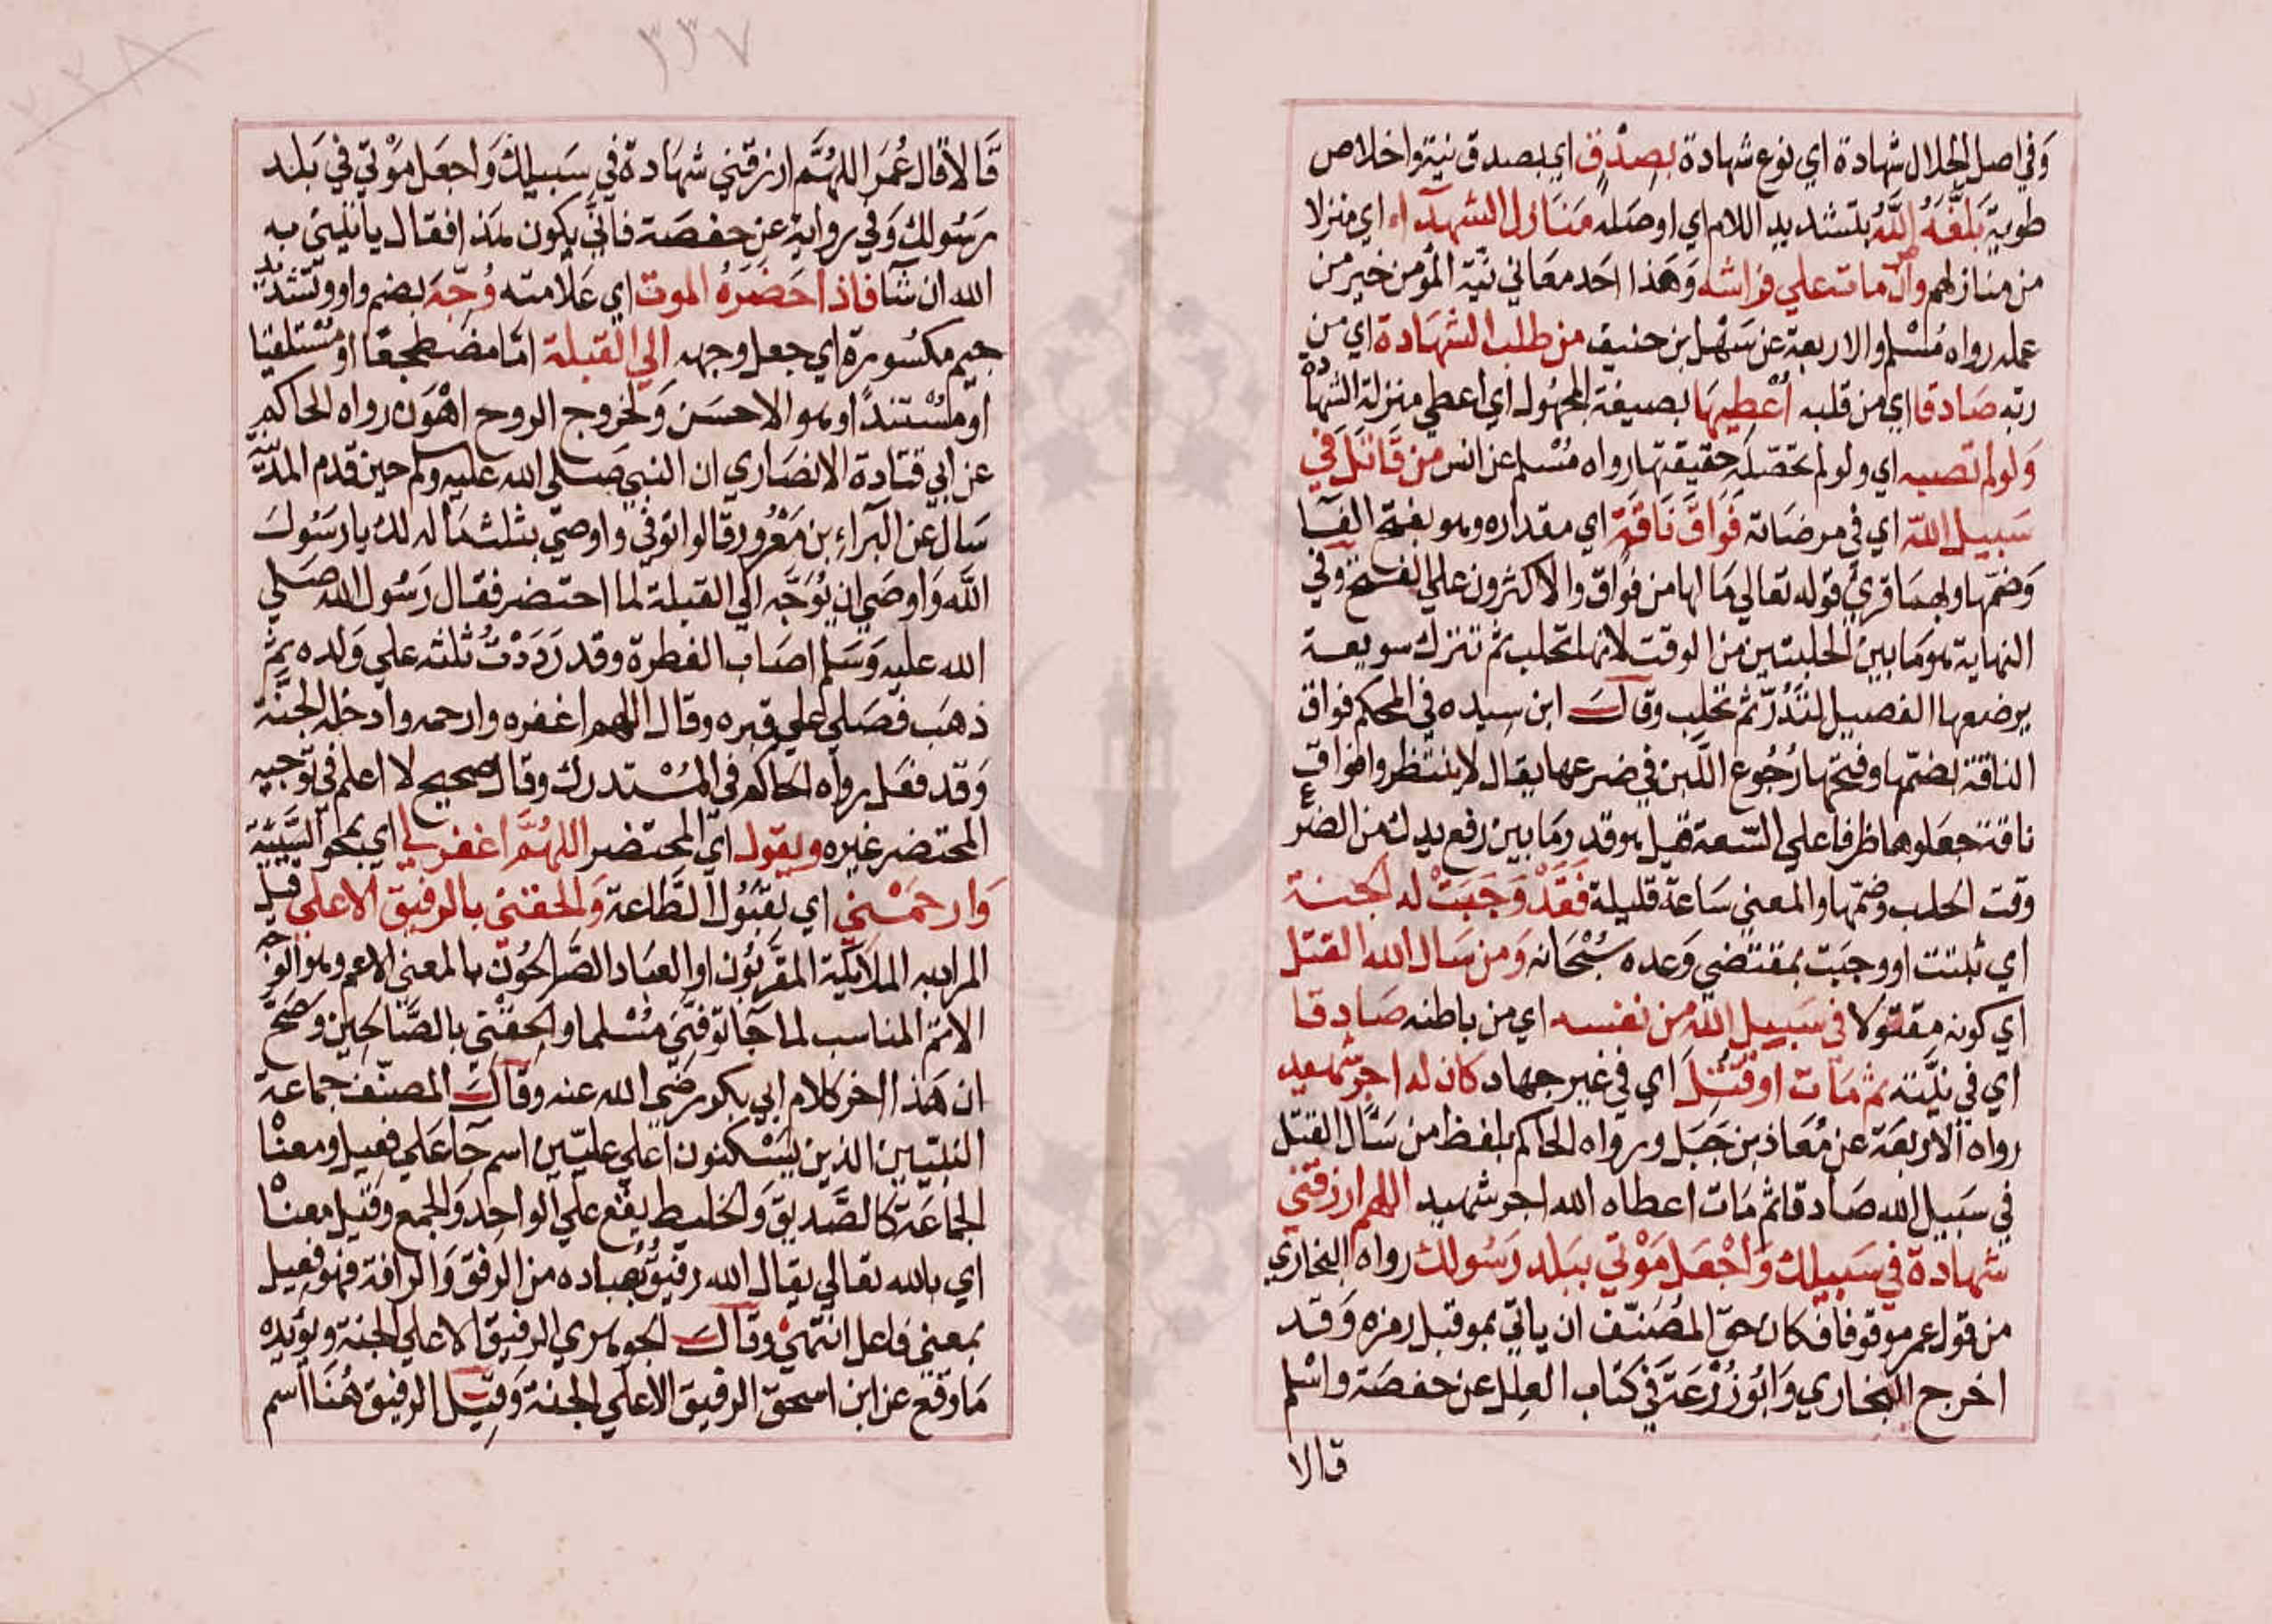 وَفي اصل الجلال شهادة اي نوع شهادة بصِدْقٍ اي بصدق نيته واخلاص
طويته بَلَّغَهُ اللَّهُ بتشديد اللام اي اوصله مَنَازل الشهدآء اي منزلا
من منازلهم وان مات علي فراشه وَهَذا احَد معَاني نيّة المؤمن خير من
عمله رواه مُسْلم والاربعة عن سَهْل بن حنيف من طلب الشهَادة اي من
ربّه صَادقا اي من قلبه أُعْطِيهَا بصيغة المجهُول اي اعطي منزلة الشهادة
وَلو لم تصبه اي ولو لم تحصّله حقيقتها رواه مُسْلم عن انس من قَاتَلَ في
سَبيل اللّه اي في مرضَاته فَوَاقَ نَاقَةٍ اي مقداره وهو بفتح الفآ
وَضمّها وبهمَا قري قوله تعالي مَا لها من فَواق والاكثرون علي الفتح وفي
النهاية هو مَا بين الحلبتين من الوقت لانها تحلب ثم تترك سويعة
يرضعها الفصيل لتَدُرّ ثم تحلب وقال ابن سِيده في المحكم فواق
الناقة بضمّها وفتحها رُجُوع اللّبن في ضرعها يقال لا ينتظروا فواق
ناقة جعَلوها ظرفا علي السّعة قيل هو قدر مَا بين رفع يدك من الضرع
وقت الحلب وضمّها والمعني سَاعة قليلة فَقَدْ وَجَبَتْ له الجنة
اي ثبتت او وجبَت بمقتضي وَعده سُبْحَانه وَمن سَال الله القتل
اي كونه مقتولا في سَبيل اللّه من نفسه اي من باطنه صَادقا
اي في نيّته ثم مَات او قُتِلَ اي في غير جهاد كان له اجر شهيد
رواه الاربعَة عن مُعَاذ بن جَبَل ورواه الحاكم بلفظ من سَال القتل
في سَبيل الله صَادقا ثم مَات اعطاه الله اجر شهيد اللهم ارزقني
شهادة في سَبيلك وَاجْعَل مَوْتي ببَلد رَسُولك رواه البخاري
من قول عمر موقوفا فكان حق المُصَنّف ان ياتي بمو قبل رمزه وَقد
اخرج البخاري وَابُو زُرْعَة في كتاب العِلل عن حفصَة واسْلم
قالا
٣٣٧
قَالا قال عُمَر اللهُمَّ ارزقني شهَادة في سَبيلك وَاجعَل مَوْتي في بَلد
رَسُولك وَفي رواية عن حفصَة فاَنّي يكون هَذا فقال ياتيني به
الله ان شآ فاذا حَضَرَهُ الموت اي عَلامته وُجّهَ بضم واو وتشديد
جيم مكسُورة اي جعل وجهه الي القبلة امّا مضطجعًا او مُسْتلقيًا
او مُسْتندًا وهو الاحسَن وَلخروج الروح اهْوَن رواه الحاكم
عن ابي قتادة الانصَاري ان النبي صَلي الله عليه وسلم حين قدم المدينة
سَال عن البَرآءِ بن مَعْرُور قالوا توفي واوصي بثلث مَاله لك يا رَسُول
اللّه وَاوصَي ان يُوَجَّه الي القبلة لما احتضر فقال رَسُول الله صَلي
الله عليه وَسَلم اصَاب الفطرة وقد رَدَدْتُ ثلثه علي وَلده ثم
ذهَب فصَلي علي قبره وقال اللهم اغفره وارحمه وادخله الجنّة
وَقد فعَل رواه الحاكم في المُسْتدرك وقال صحيح لا اعلم في توجيه
المحتضر غيره ويقول اي المحتضر اللهُمَّ اغفر لي اي بمحو السَّيّئة
وَارحَمْني اي بقبُول الطّاعة وَالحقني بالرفيق الاعلي قيل
المراد به الملائكة المقرّبُون او العبَاد الصَّالحُون بالمعني الاعم وهو الوجه
الاتم المناسب لما جآ توفَّني مُسْلما والحِقْني بالصَّالحِين وَصَحّ
ان هَذا اخر كلام ابي بكر رضَي الله عنه وقال المصنّف جماعة
النبيّين الذين يسْكنون اَعلي عليّين اسم جآ علي فعيل ومعناه
الجماعَة كالصَّديق وَالخليط يقع علي الواحِد وَالجمع وَقيل معناه
اي بالله تعالي يقال الله رفيقٌ بعباده من الرفق وَالرافة فهو فعيل
بمعني فاعل انتهي وقال الجوهري الرفيق الاعلي الجنة ويؤيده
مَا وقع عن ابن اسحق الرفيق الاعلي الجنة وَقيل الرفيق هُنَا اسم